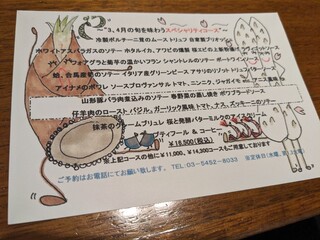 "3、4月の旬を味わうスペシャリティコース"
冷製ポルチーニ茸のムース トリュフ 自家製ブリオッシュ
ホワイトアスパラガスのソテー ホタルイカ、アワビの燻製 桜エビの
フォアグラと菊芋の温かいフラン シャントレルのソテー ポートワインソース
鮑、台馬鹿筍のソテー イタリア産グリーンピース アサリのリゾット トリュフ
アイナメのポワレ ソースプロヴァンサル トマト、ニンニク、ジャガイモ アニス風味
山形豚バラ肉煮込みのソテー 季野菜の直し焼き ポワブラードソース
仔羊肉のロースト バジル、ガーリック風味 トマト、ナス、ズッキーニのソテー
抹茶のクレームブリュレ 桜と発酵バターミルクのアイスクリーム
プティフール & コーヒー
¥16,500(税込)
※上記コースの他に¥11,000、¥14,300コースもご用意しております
ご予約はお電話にてお願い致します。 TEL 03-5452-8033 ※定休日(水曜、第1,3火曜)